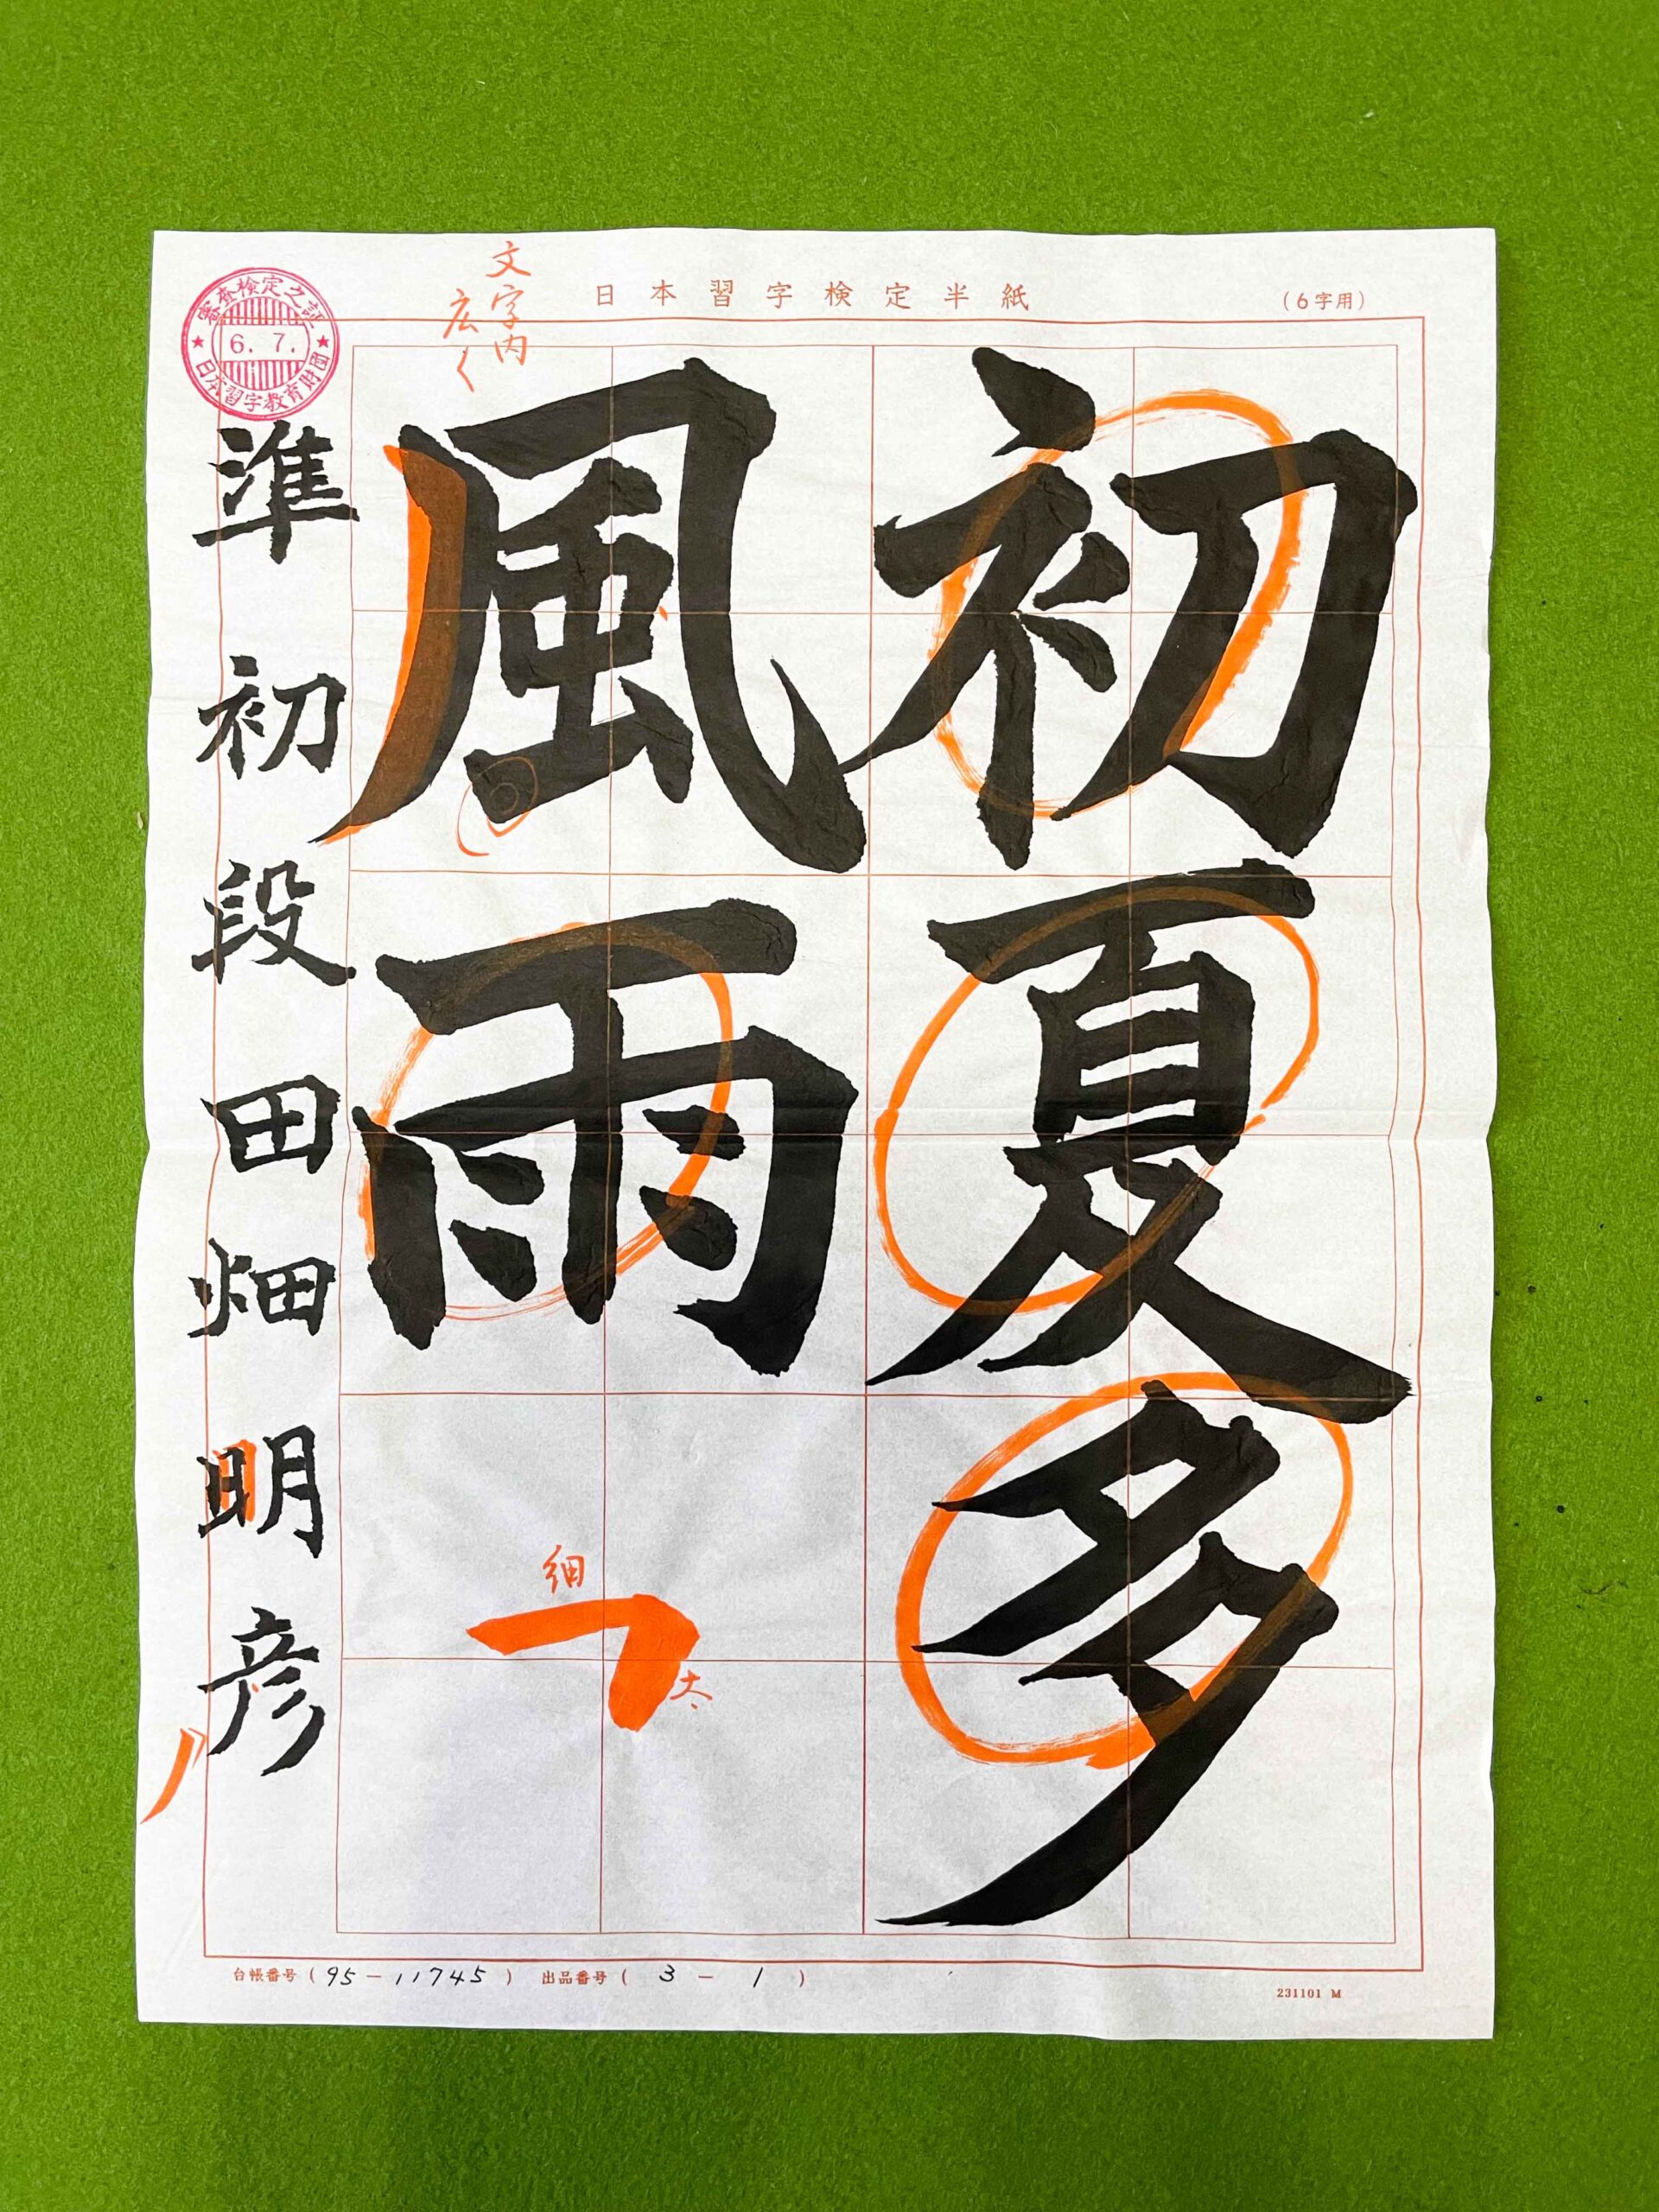 日本習字検定半紙
(6字用)
初夏多
風雨
文字内
広く
細
太
審査検定之証
6. 7.
日本習字教育財団
準初段田畑明彦
台帳番号(95-11745) 出品番号(3-1)
231101 M